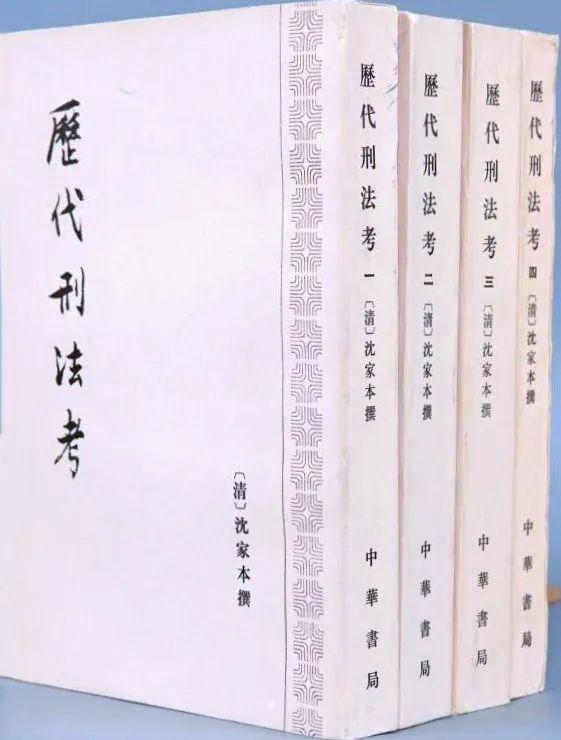 歷代刑法考
〔清〕沈家本撰
歷代刑法考 一 〔清〕沈家本撰 中華書局
歷代刑法考 二 〔清〕沈家本撰 中華書局
歷代刑法考 三 〔清〕沈家本撰 中華書局
歷代刑法考 四 〔清〕沈家本撰 中華書局